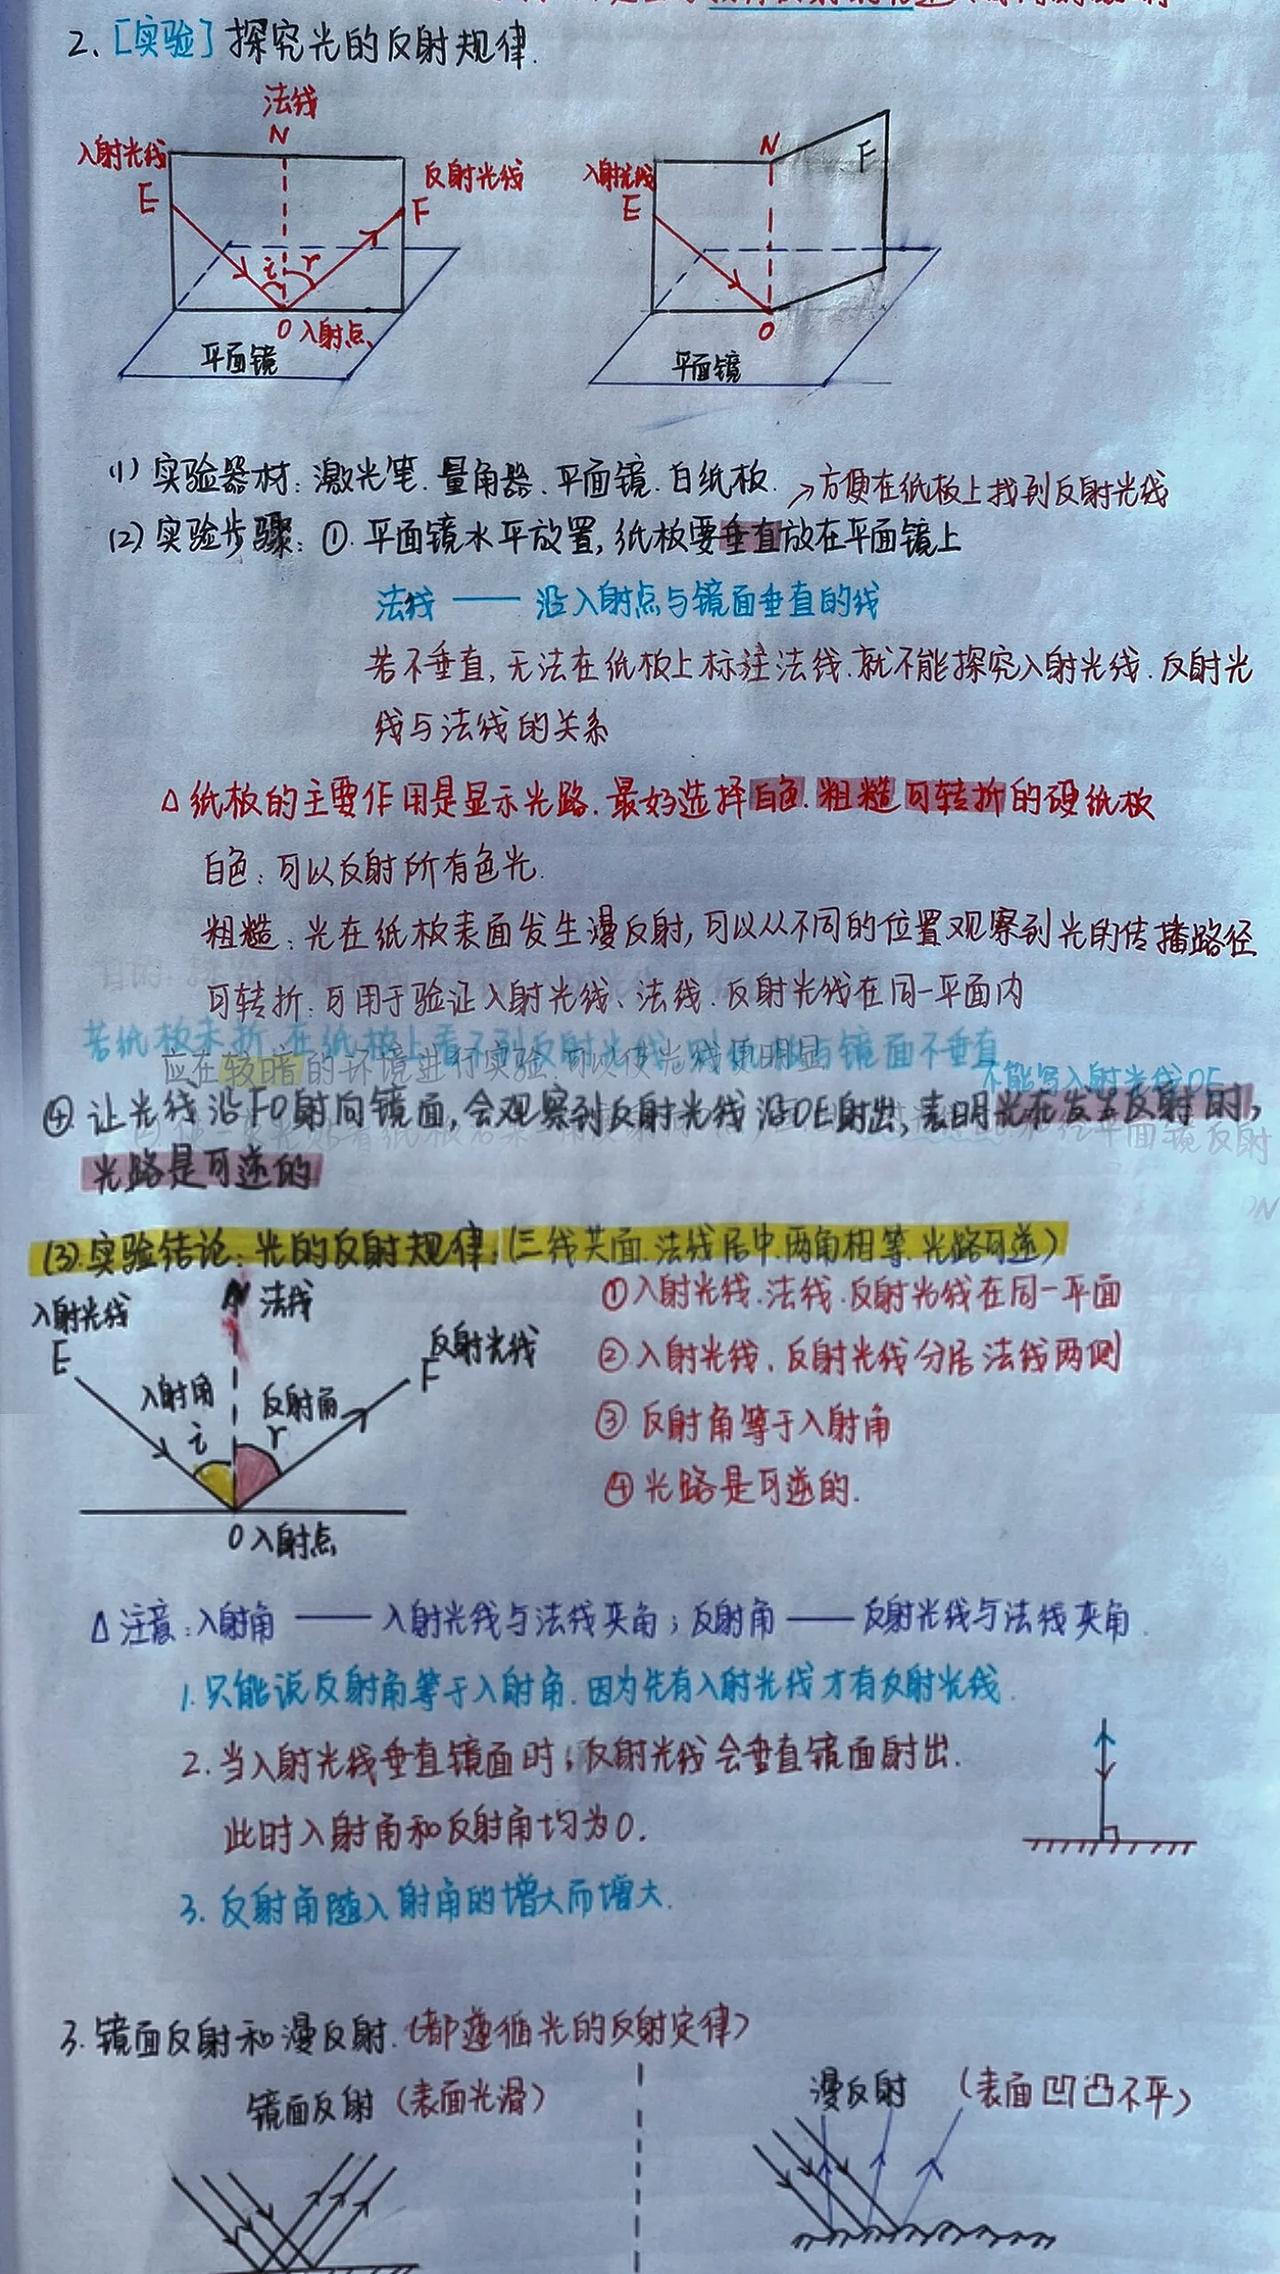 2、[实验] 探究光的反射规律.
法线
N
入射光线
E
反射光线
F
i r
O 入射点
平面镜
N
F
入射光线
E
O
平面镜
(1) 实验器材: 激光笔. 量角器. 平面镜. 白纸板. →方便在纸板上找到反射光线
(2) 实验步骤: ①. 平面镜水平放置, 纸板要垂直放在平面镜上
法线 —— 沿入射点与镜面垂直的线
若不垂直, 无法在纸板上标注法线. 就不能探究入射光线. 反射光
线与法线的关系
△ 纸板的主要作用是显示光路. 最好选择白色. 粗糙 可转折的硬纸板
白色: 可以反射所有色光.
粗糙: 光在纸板表面发生漫反射, 可以从不同的位置观察到光的传播路径
可转折: 可用于验证入射光线、法线. 反射光线在同一平面内
若纸板未折, 在纸板上看不到反射光线, 则纸板与镜面不垂直
应在较暗的环境进行实验, 可以使光线更明显
④ 让光线沿FO射向镜面, 会观察到反射光线沿OE射出, 表明光在发生反射时,
光路是可逆的
(3). 实验结论: 光的反射规律: (三线共面. 法线居中. 两角相等. 光路可逆)
N 法线
入射光线
E
反射光线
F
入射角 反射角
i r
O 入射点
① 入射光线. 法线. 反射光线在同一平面
② 入射光线. 反射光线分居法线两侧
③ 反射角等于入射角
④ 光路是可逆的.
△ 注意: 入射角 —— 入射光线与法线夹角; 反射角 —— 反射光线与法线夹角.
1. 只能说反射角等于入射角. 因为先有入射光线才有反射光线.
2. 当入射光线垂直镜面时, 反射光线会垂直镜面射出.
此时入射角和反射角均为0.
3. 反射角随入射角的增大而增大.
3. 镜面反射和漫反射. (都遵循光的反射定律)
镜面反射 (表面光滑)
漫反射 (表面凹凸不平)